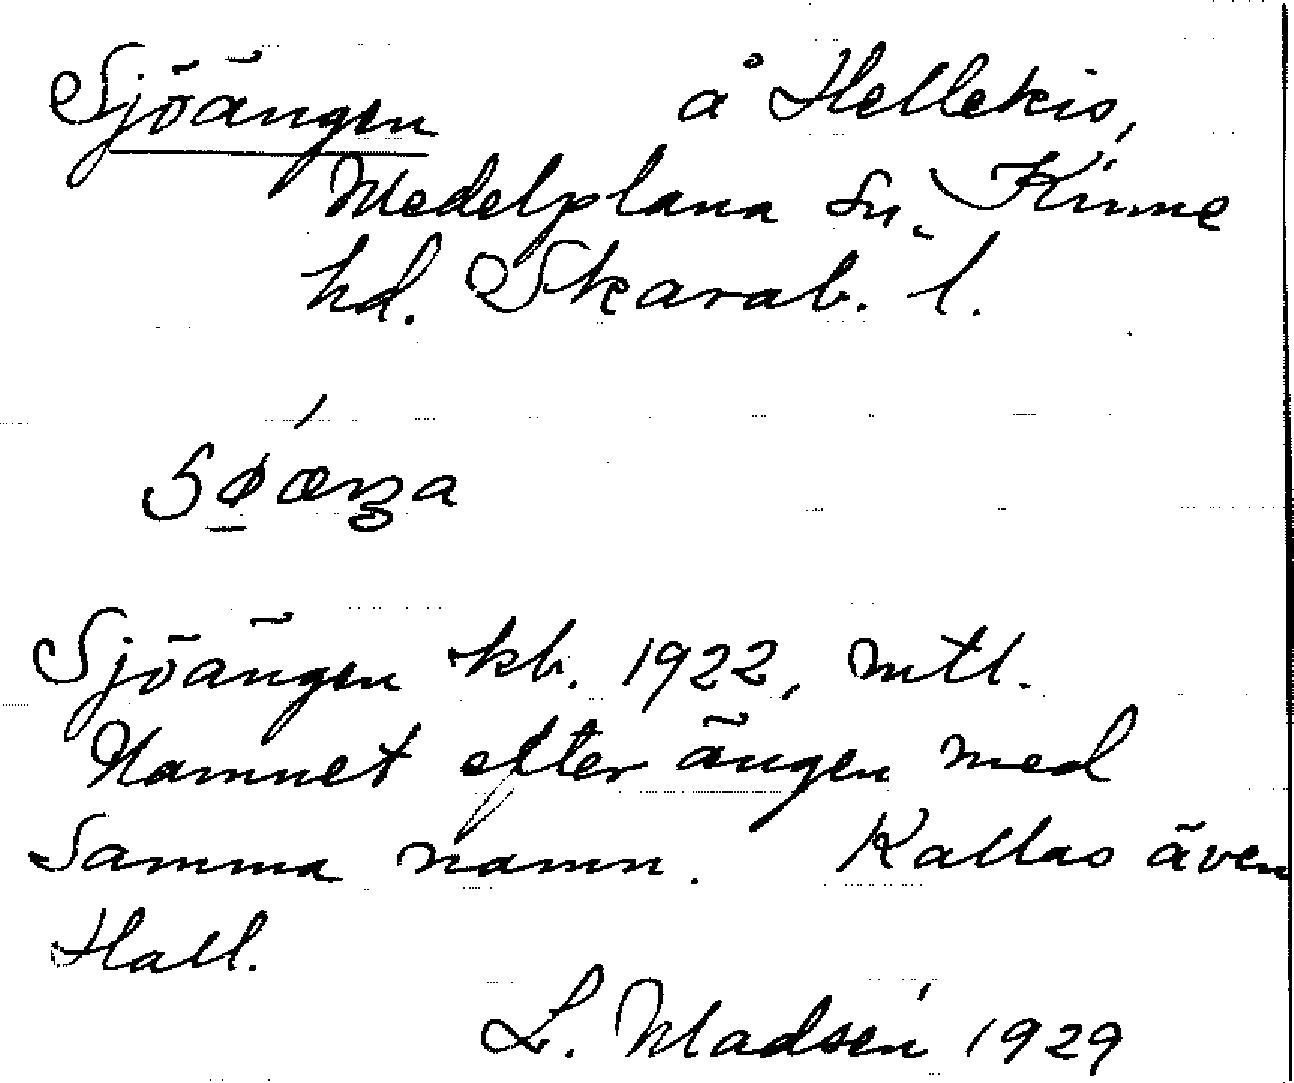 Sjöängen å Hellekis,
Medelplana sn. Kinne
hd. Skarab. l.
Sjöängen kb. 1922, mtl.
Namnet efter ängen med
samma namn. Kallas även
Hall.
L. Madsén 1929